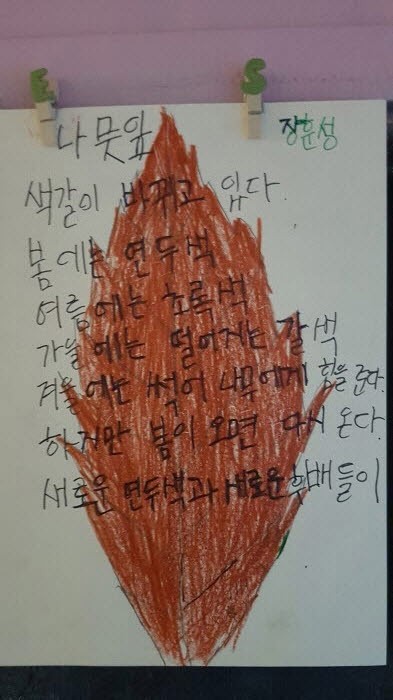 E S
나뭇잎
장훈성
색갈이 바뀌고 있다.
봄에는 연두색
여름에는 초록색
가을에는 떨어지는 갈색
겨울에는 썩어 나무에게 힘을 준다.
하지만 봄이 오면 다시 온다.
새로운 연두색과 새로운 후배들이